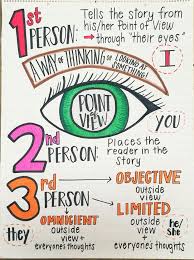 1st PERSON:
Tells the story from
his/her Point of View
→ through "their eyes."
I
A WAY OF THINKING OR LOOKING AT SOMETHING!
POINT
OF
VIEW
YOU
2nd PERSON:
Places the
reader in the
Story
3rd PERSON
→ OBJECTIVE
outside
view
→ LIMITED
outside
view
+ everyone's thoughts
he/she
they
OMNICIENT
outside
view +
everyones thoughts